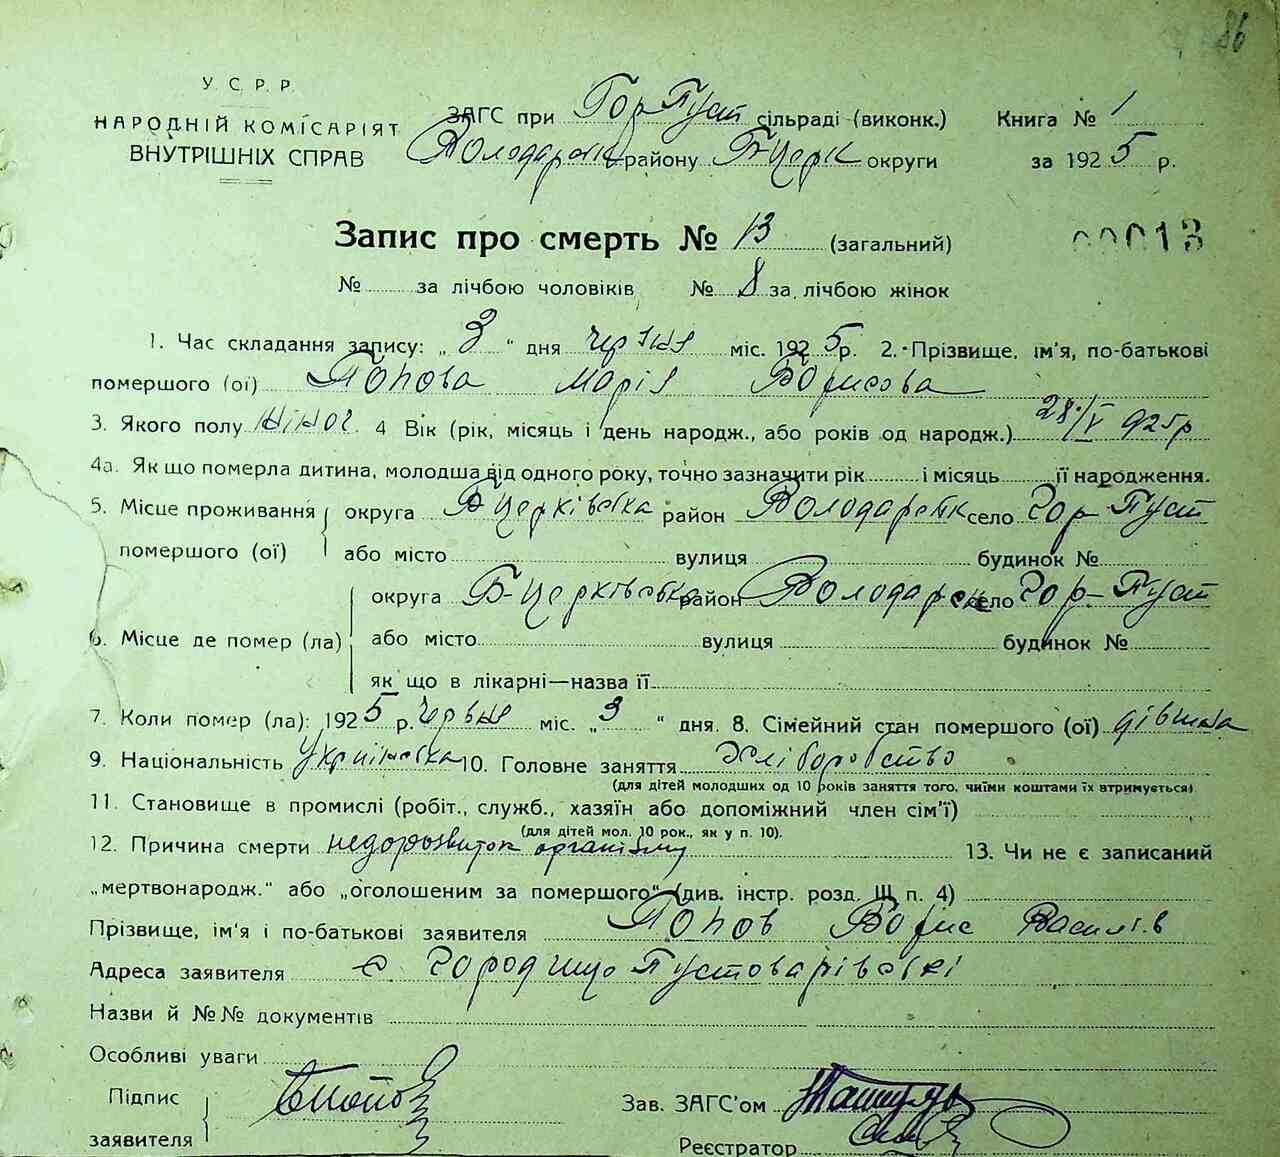 86
У.С.Р.Р.
НАРОДНІЙ КОМІСАРІЯТ
ВНУТРІШНІХ СПРАВ
ЗАГС при Гор Пуст сільраді (виконк.) Книга № 1
Володарськ району Б-Церк округи за 1925 р.
Запис про смерть № 13 (загальний) 00013
№ за лічбою чоловіків № 8 за лічбою жінок
1. Час складання запису: „3“ дня червня міс. 1925 р. 2. Прізвище, ім'я, по-батькові
помершого (ої) Попова Марія Борисова
3. Якого полу жіноч. 4 Вік (рік, місяць і день народж., або років од народж.) 28/V 925 р
4а. Як що померла дитина, молодша від одного року, точно зазначити рік і місяць її народження.
5. Місце проживання помершого (ої) округа Б Церківська район Володарськ село Гор-Пуст
або місто вулиця будинок №
6. Місце де помер (ла) округа Б-Церківська район Володарськ село Гор-Пуст
або місто вулиця будинок №
як що в лікарні—назва її
7. Коли помер (ла): 1925 р. червня міс. „3“ дня. 8. Сімейний стан помершого (ої) дівчина
9. Національність Українська 10. Головне заняття Хліборобство
(для дітей молодших од 10 років заняття того, чиїми коштами їх втримується)
11. Становище в промислі (робіт., служб., хазяїн або допоміжний член сім'ї)
(для дітей мол. 10 рок., як у п. 10).
12. Причина смерти недорозвиток організму 13. Чи не є записаний
„мертвонародж.“ або „оголошеним за помершого“ (див. інстр. розд. Ш п. 4)
Прізвище, ім'я і по-батькові заявителя Попов Борис Василів
Адреса заявителя с Городище Пустоварівські
Назви й №№ документів
Особливі уваги
Підпис заявителя БПопов
Зав. ЗАГС'ом
Реєстратор